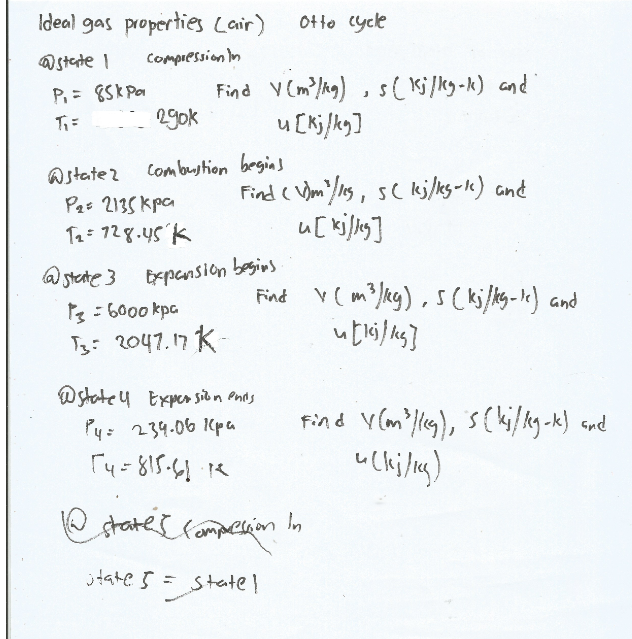 Ideal gas properties (air) Otto cycle
@state 1 compression In
P₁ = 85kPa Find V(m³/kg) , s(kj/kg-k) and
T₁ = 290k u[kj/kg]
@state2 combustion begins
P₂= 2135kpa Find (V)m³/kg, s( kj/kg-k) and
T₂= 728.45 K u[kj/kg]
@state3 Expansion begins
P₃ = 6000kpa Find V( m³/kg) , s(kj/kg-k) and
T₃= 2047.17 K u[kj/kg]
@state4 Expansion ends
P₄= 239.06 kpa Find V(m³/kg), s(kj/kg-k) and
T₄=815.61 k u(kj/kg)
@ state5 compression In
state5 = state1